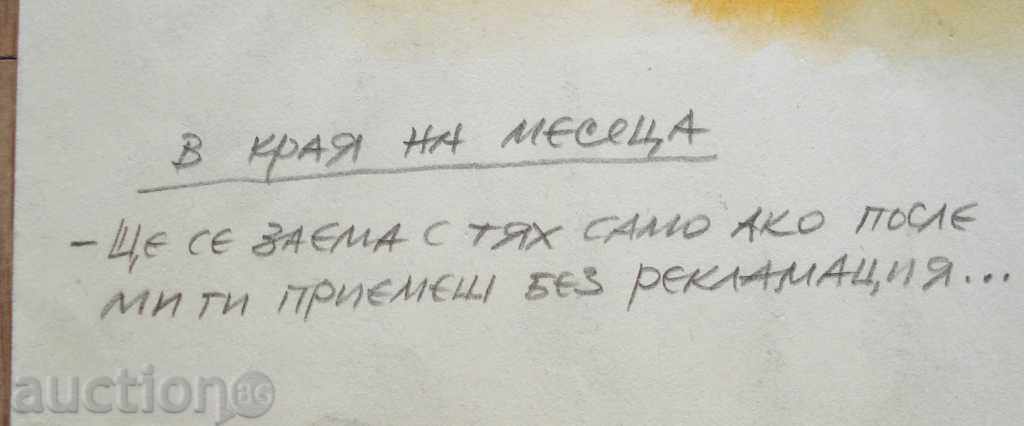 В КРАЯ НА МЕСЕЦА
– ЩЕ СЕ ЗАЕМА С ТЯХ САМО АКО ПОСЛЕ
МИ ГИ ПРИЕМЕШ БЕЗ РЕКЛАМАЦИЯ...
auction BG